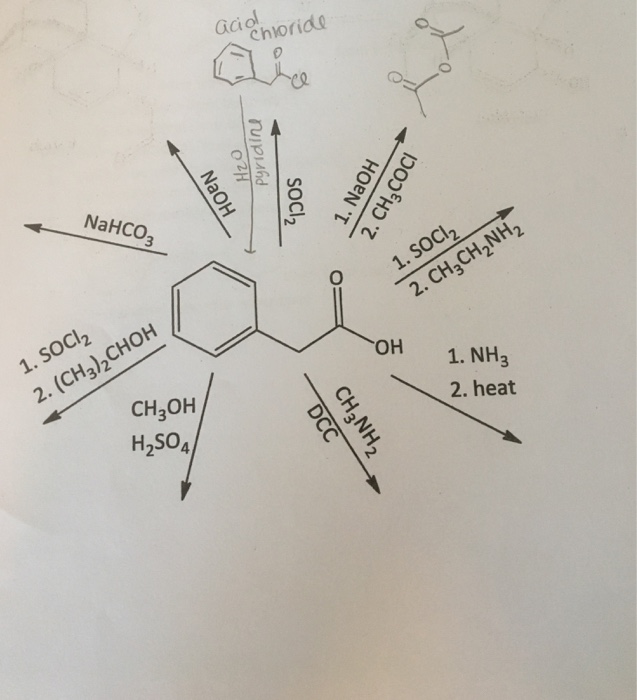 acid
chloride
O
Cl
O
O
O
H2O
pyridine
NaHCO3
NaOH
SOCl2
1. NaOH
2. CH3COCl
1. SOCl2
2. CH3CH2NH2
O
OH
1. SOCl2
2. (CH3)2CHOH
CH3OH
H2SO4
CH3NH2
DCC
1. NH3
2. heat